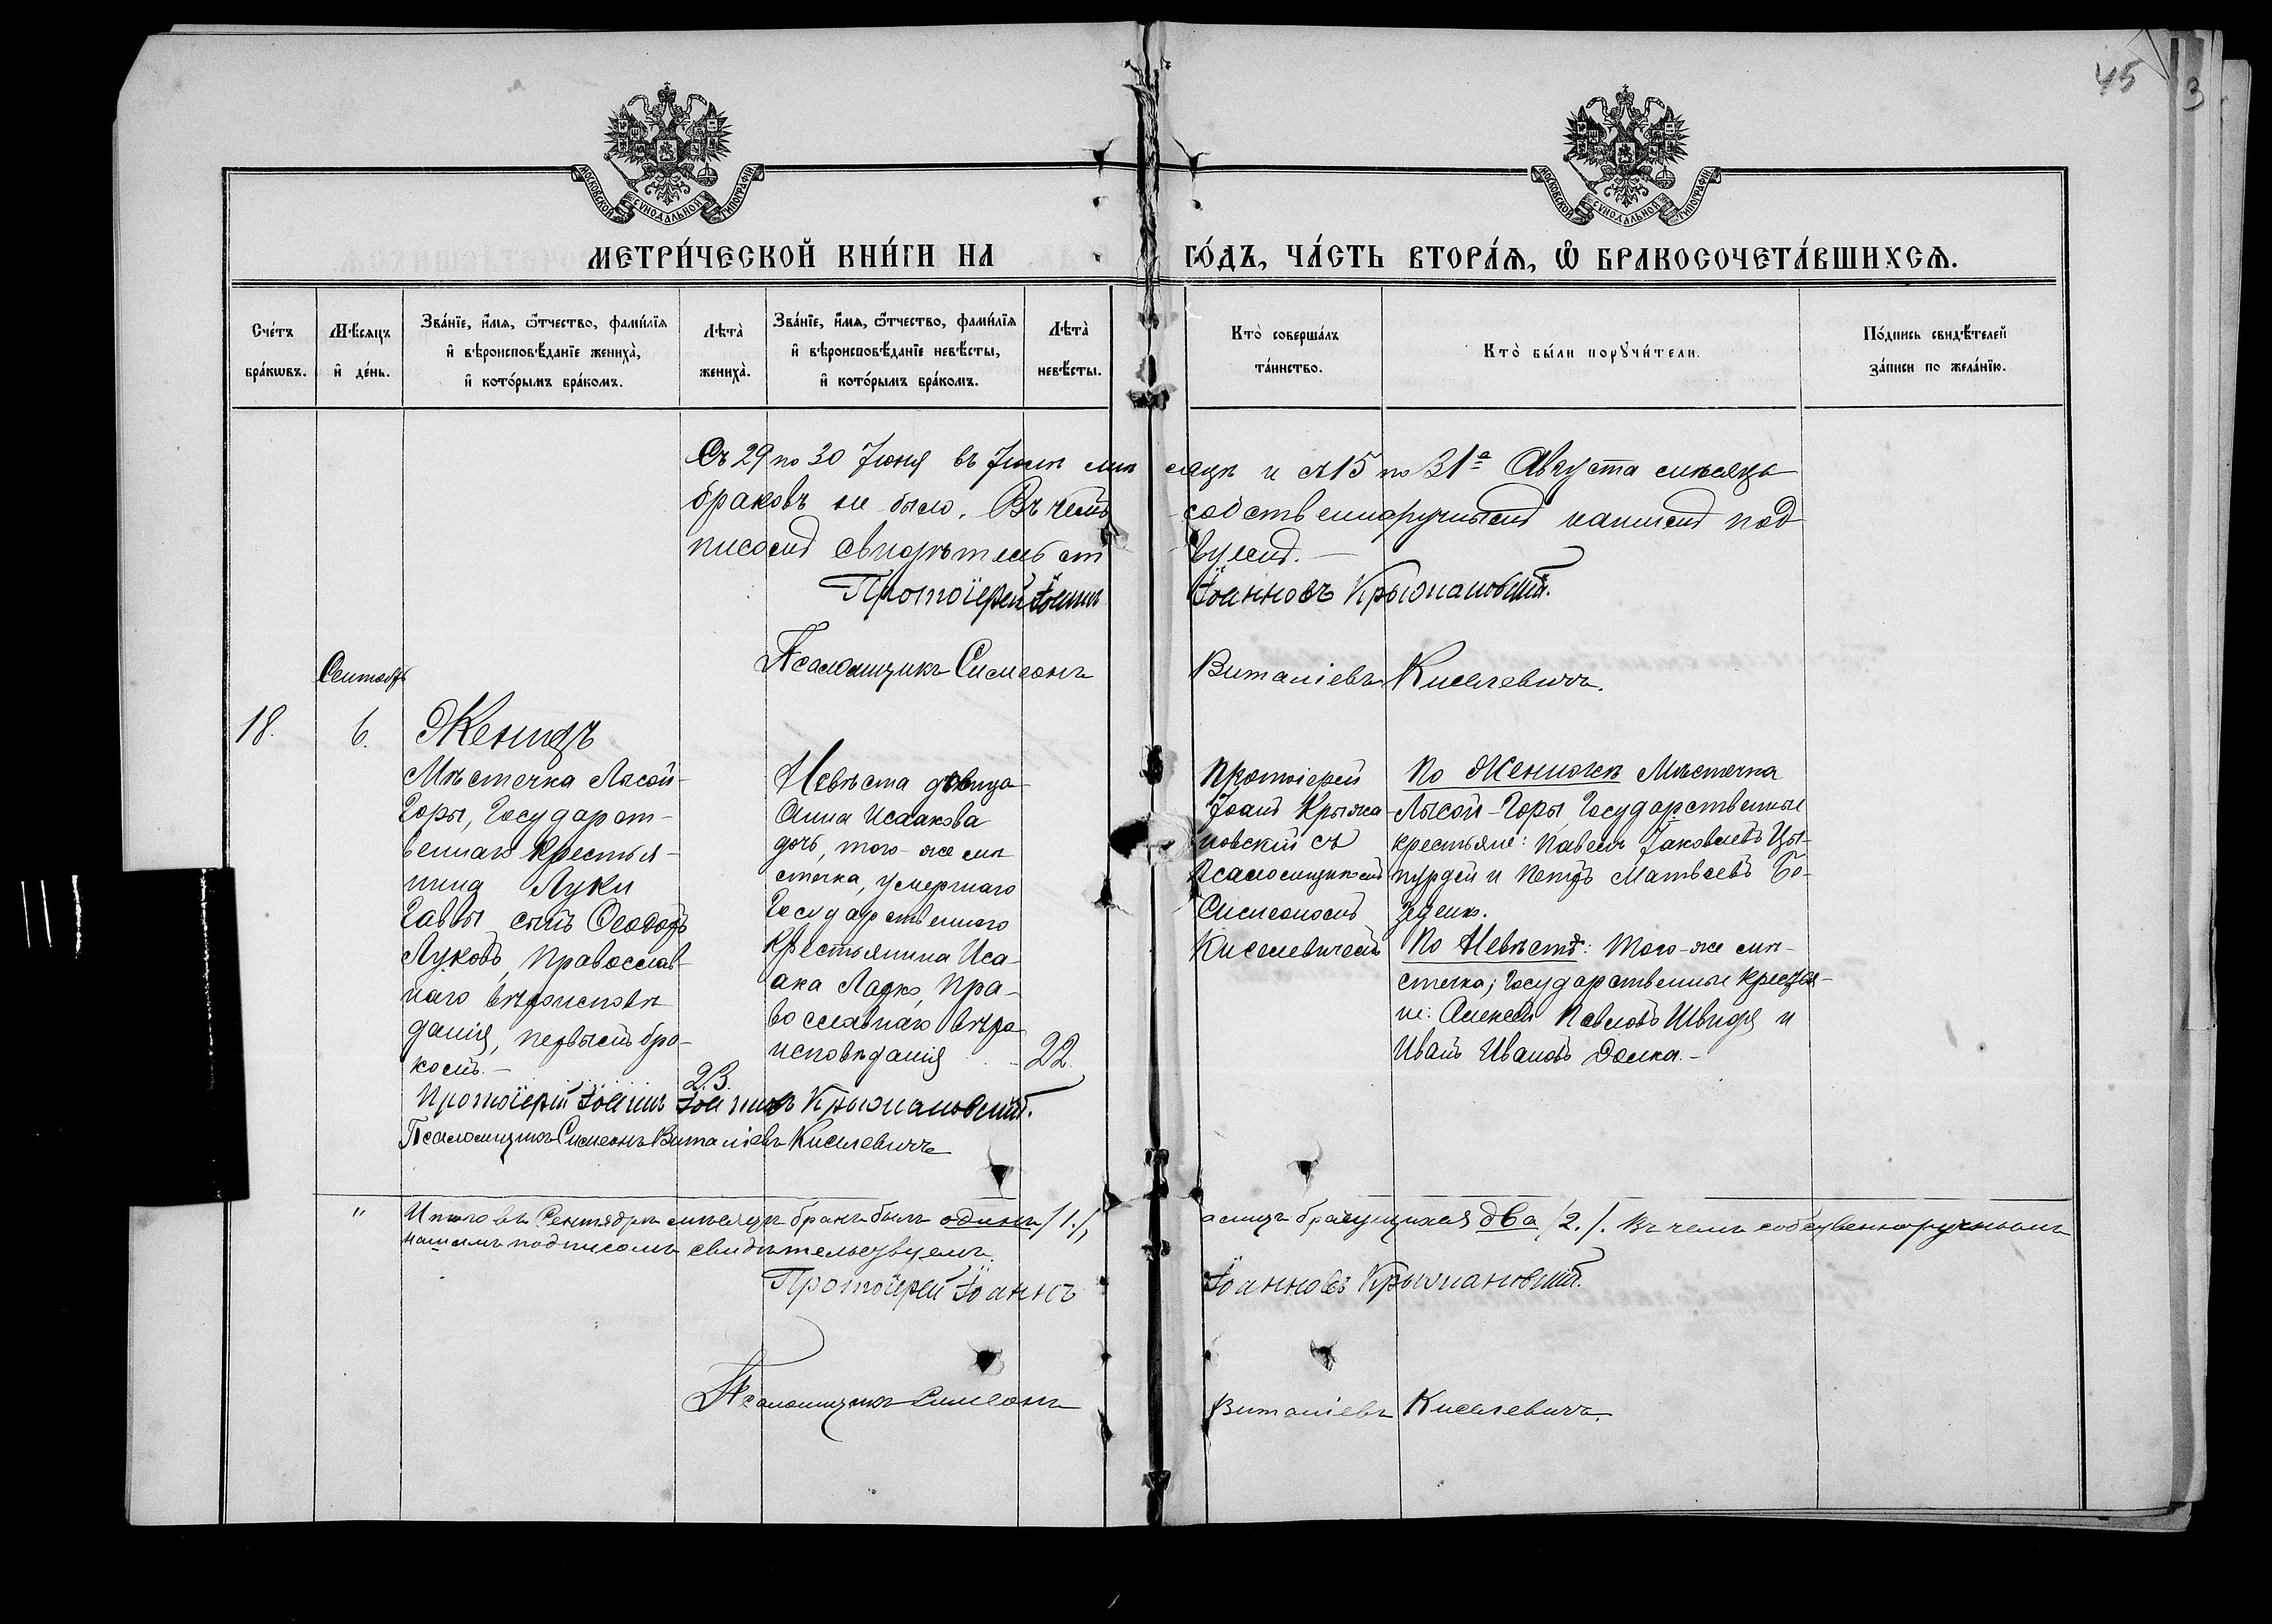 45
3
МОСКОВСКОЙ СУНОДАЛЬНОЙ ТИПОГРАФІИ
МОСКОВСКОЙ СУНОДАЛЬНОЙ ТИПОГРАФІИ
МЕТРИ́ЧЕСКОЙ КНИ́ГИ НА ГО́ДЪ, ЧА́СТЬ ВТОРА́Ѧ, Ѽ БРАКОСОЧЕТА́ВШИХСѦ.
Сче́тъ бра́кѡвъ.
Мѣ́сяцъ и҆ де́нь.
Зва́нїе, и҆́мя, ѻ҆́тчество, фами́лїя и҆ вѣроисповѣ́данїе жениха̀, и҆ кото́рымъ бра́комъ.
Лѣта̀ жениха̀.
Зва́нїе, и҆́мя, ѻ҆́тчество, фами́лїя и҆ вѣроисповѣ́данїе невѣ́сты, и҆ кото́рымъ бра́комъ.
Лѣта̀ невѣ́сты.
Кто̀ соверша́лъ та́инство.
Кто̀ бы́ли порꙋчи́тели.
По́дпись свидѣ́телей за́писи по жела́нїю.
Съ 29 по 30 Іюня въ Іюлѣ мѣсяцѣ и съ 15 по 31е Августа мѣсяца
браковъ не было. Въ чемъ собственноручнымъ нашимъ под
писомъ свидѣтельствуемъ.—
Протоіерей Іоаннъ Іоанновъ Крыжановскій.
Псаломщикъ Симеонъ Виталіевъ Киселевичъ.
Сентябрь
18.
6.
Женихъ
Мѣстечка Лысой-
Горы, Государст-
веннаго Крестья-
нина Луки
Гаввы сынъ Ѳеодоръ
Луковъ, Православ-
наго вѣроисповѣ
данія, первымъ бра-
комъ.—
23.
Невѣста дѣвица
Анна Исаакова
дочь, того-же мѣ
стечка, умершаго
Государственнаго
Крестьянина Иса-
ака Ладко, Пра-
вославнаго вѣро
исповѣданія
22.
Протоіерей
Іоаннъ Крыжа
новскій съ
Псаломщикомъ
Симеономъ
Киселевичемъ
По Женихѣ Мѣстечка
Лысой-Горы Государственные
крестьяне: Павелъ Іаковлевъ Цы-
пурдей и Петръ Матвѣевъ Бо-
зденко.
По Невѣстѣ: того-же мѣ-
стечка, Государственные крестья-
не: Алексѣй Павловъ Швидя и
Иванъ Ивановъ Долка.—
Протоіерей Іоаннъ Іоанновъ Крыжановскій.
Псаломщикъ Симеонъ Виталіевъ Киселевичъ
" Итого въ Сентябрѣ мѣсяцѣ бракъ былъ одинъ /1./, а лицъ брачущихся два /2./. Въ чемъ собственноручнымъ
нашимъ подписомъ свидѣтельствуемъ.
Протоіерей Іоаннъ Іоанновъ Крыжановскій.
Псаломщикъ Симеонъ Виталіевъ Киселевичъ.